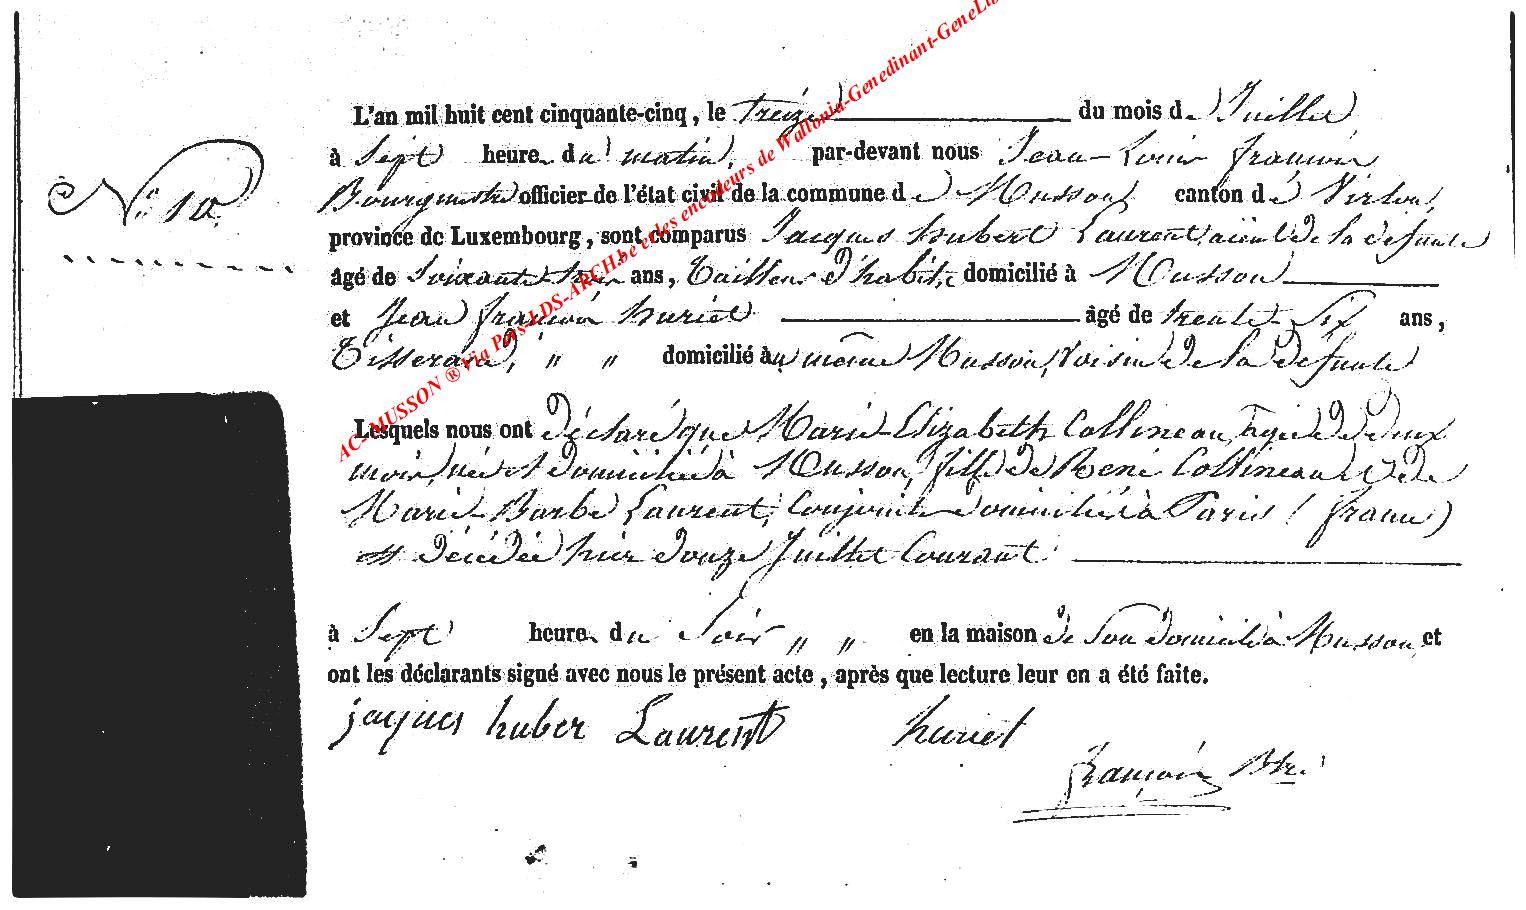 L'an mil huit cent cinquante-cinq, le treize du mois de Juillet
à Sept heures du matin, par-devant nous Jean-Louis françois
N.º 10. Bourgmestre officier de l'état civil de la commune de Musson canton de Virton,
province de Luxembourg, sont comparus Jacques hubert Laurent, aïeul de la defunte
âgé de Soixante-trois ans, Tailleur d'habits domicilié à Musson
et Jean françois huriet âgé de trente-Six ans,
Tisserand, " " domicilié au même Musson, Voisin de la defunte
Lesquels nous ont déclaré que Marie-Elizabeth Collineau, agée de deux
mois, née et domiciliée à Musson, fille de René Collineau et de
Marie-Barbe Laurent, Conjoints domiciliés à Paris (france)
est décédée hier douze Juillet Courant
à Sept heures du Soir " " en la maison de Son domicile à Musson, et
ont les déclarants signé avec nous le présent acte, après que lecture leur en a été faite.
jaques huber Laurent huriet
françois Btre.
AC-MUSSON ® Via Pays-LDS-ARCH.be et les encodeurs de Wallonia-Genedinant-GeneLu